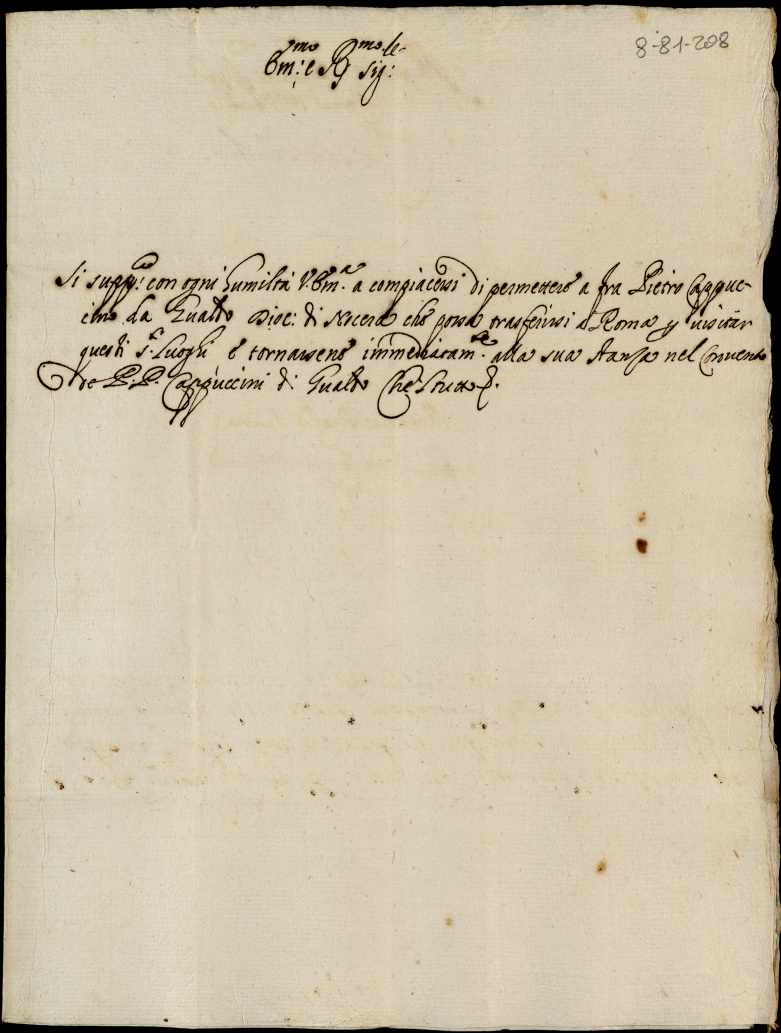 8-81-208
Em:mo e R:mo Sig:re
Si supp:ca con ogni humiltà V. Em:a a compiacersi di permettere a fra Pietro Cappuc-
cino da Gualdo Dioc: di Nocera che possa trasferirsi a Roma p visitar
questi S:ti Luoghi e tornarsene immediatam:te alla sua stanza nel Convento
de P.P. Cappuccini di Gualdo Che